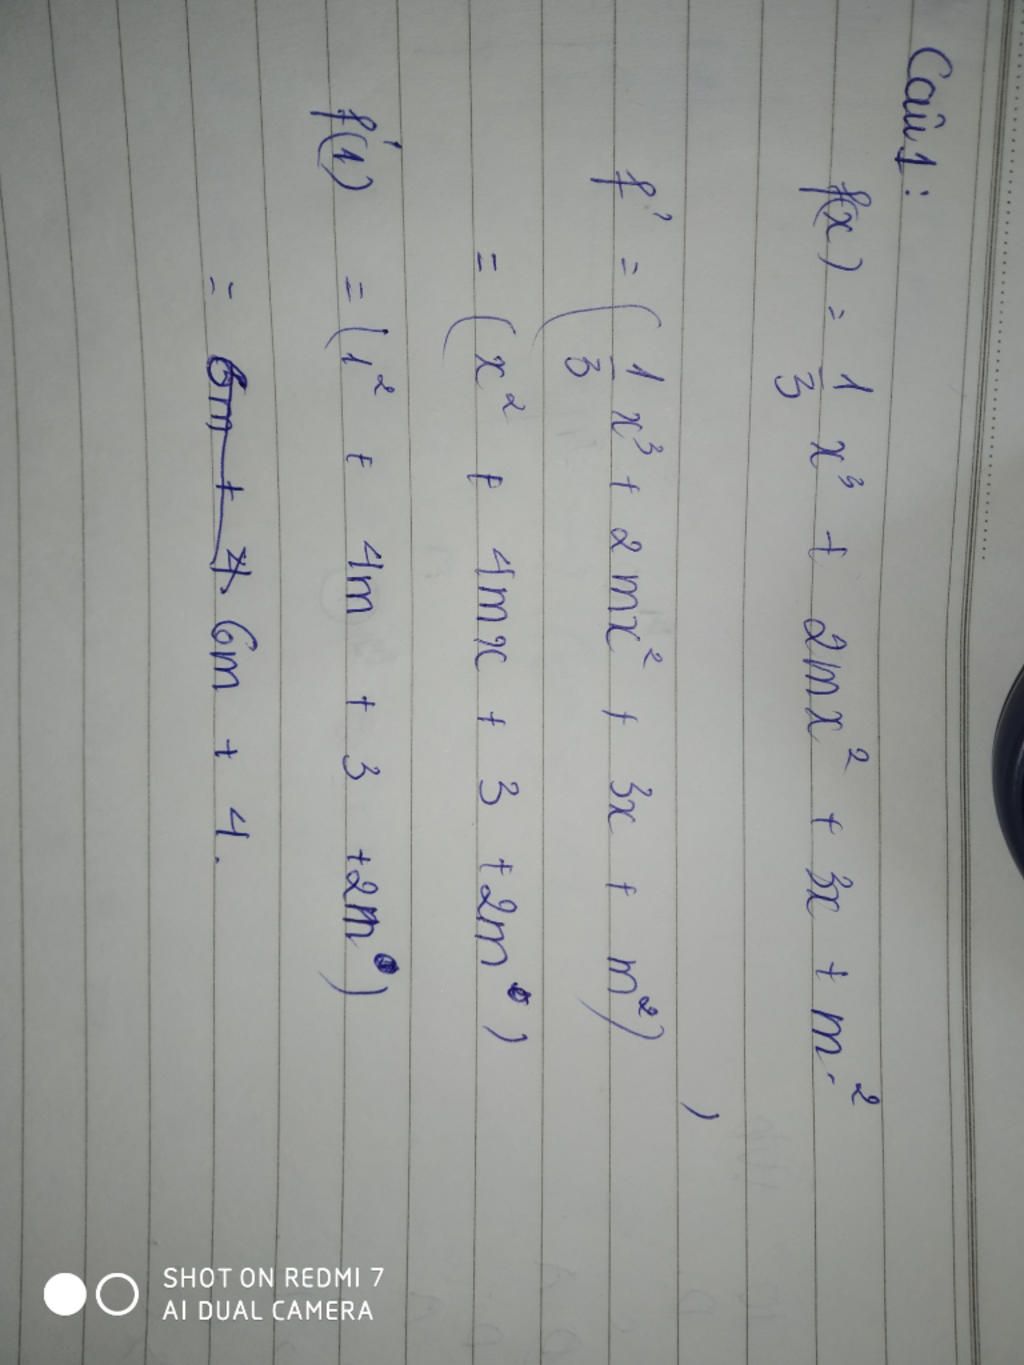 Câu 1:
f(x) = 1/3 x³ + 2mx² + 3x + m²
f' = (1/3 x³ + 2mx² + 3x + m²)'
= (x² + 4mx + 3 + 2m)
f'(1) = (1² + 4m + 3 + 2m)
= 6m + 4.
SHOT ON REDMI 7
AI DUAL CAMERA